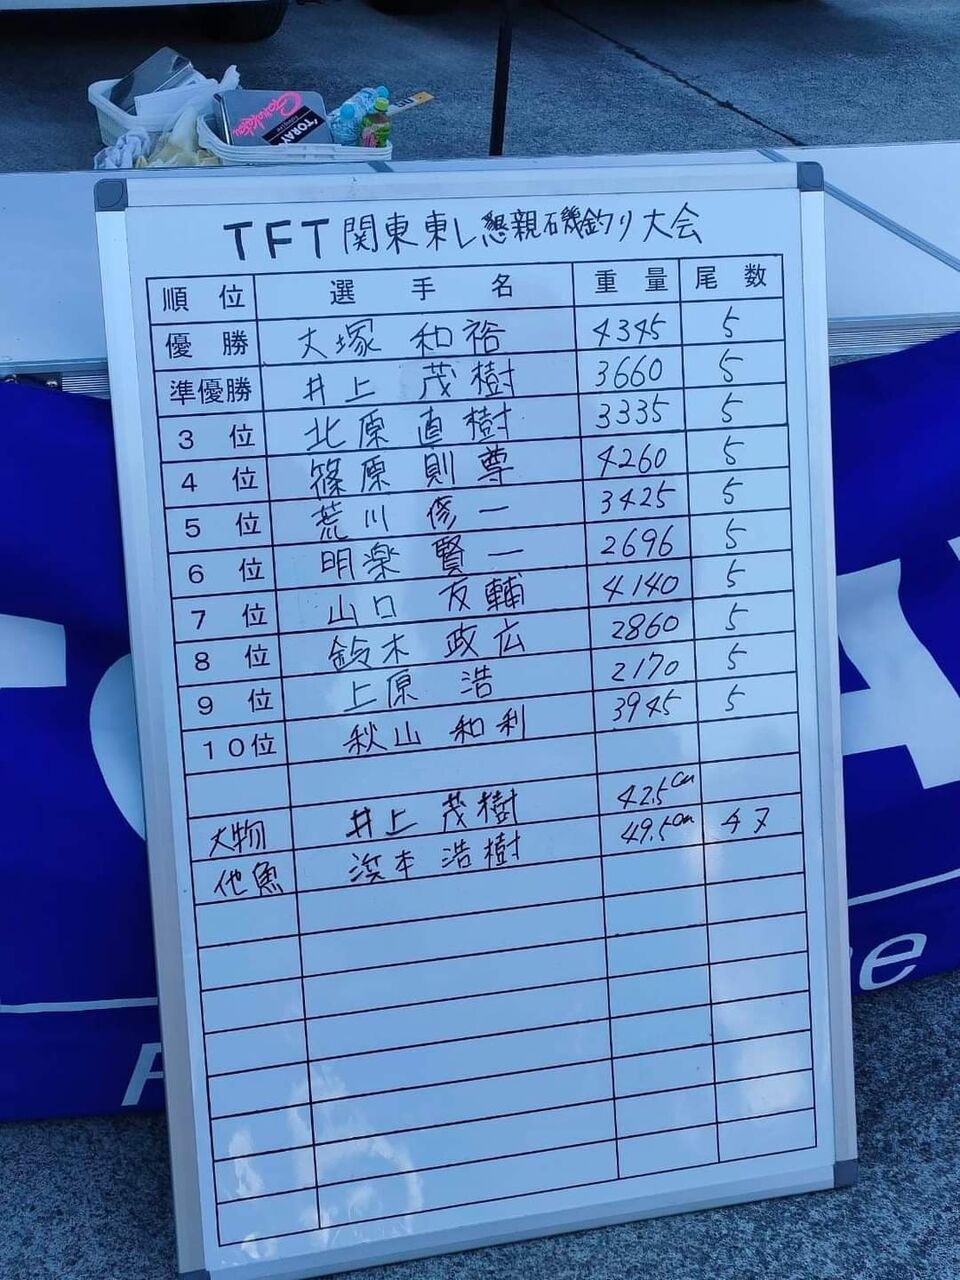 Gamakatsu
'TORAY
TFT関東東レ懇親磯釣り大会
順位 選手名 重量 尾数
優勝 大塚 和裕 4345 5
準優勝 井上 茂樹 3660 5
3位 北原 直樹 3335 5
4位 篠原 則尊 4260 5
5位 荒川 修一 3425 5
6位 明楽 賢一 2696 5
7位 山口 友輔 4140 5
8位 鈴木 政広 2860 5
9位 上原 浩 2170 5
10位 秋山 和利 3945 5
大物 井上 茂樹 42.5cm
他魚 浜本 浩樹 49.5cm チヌ